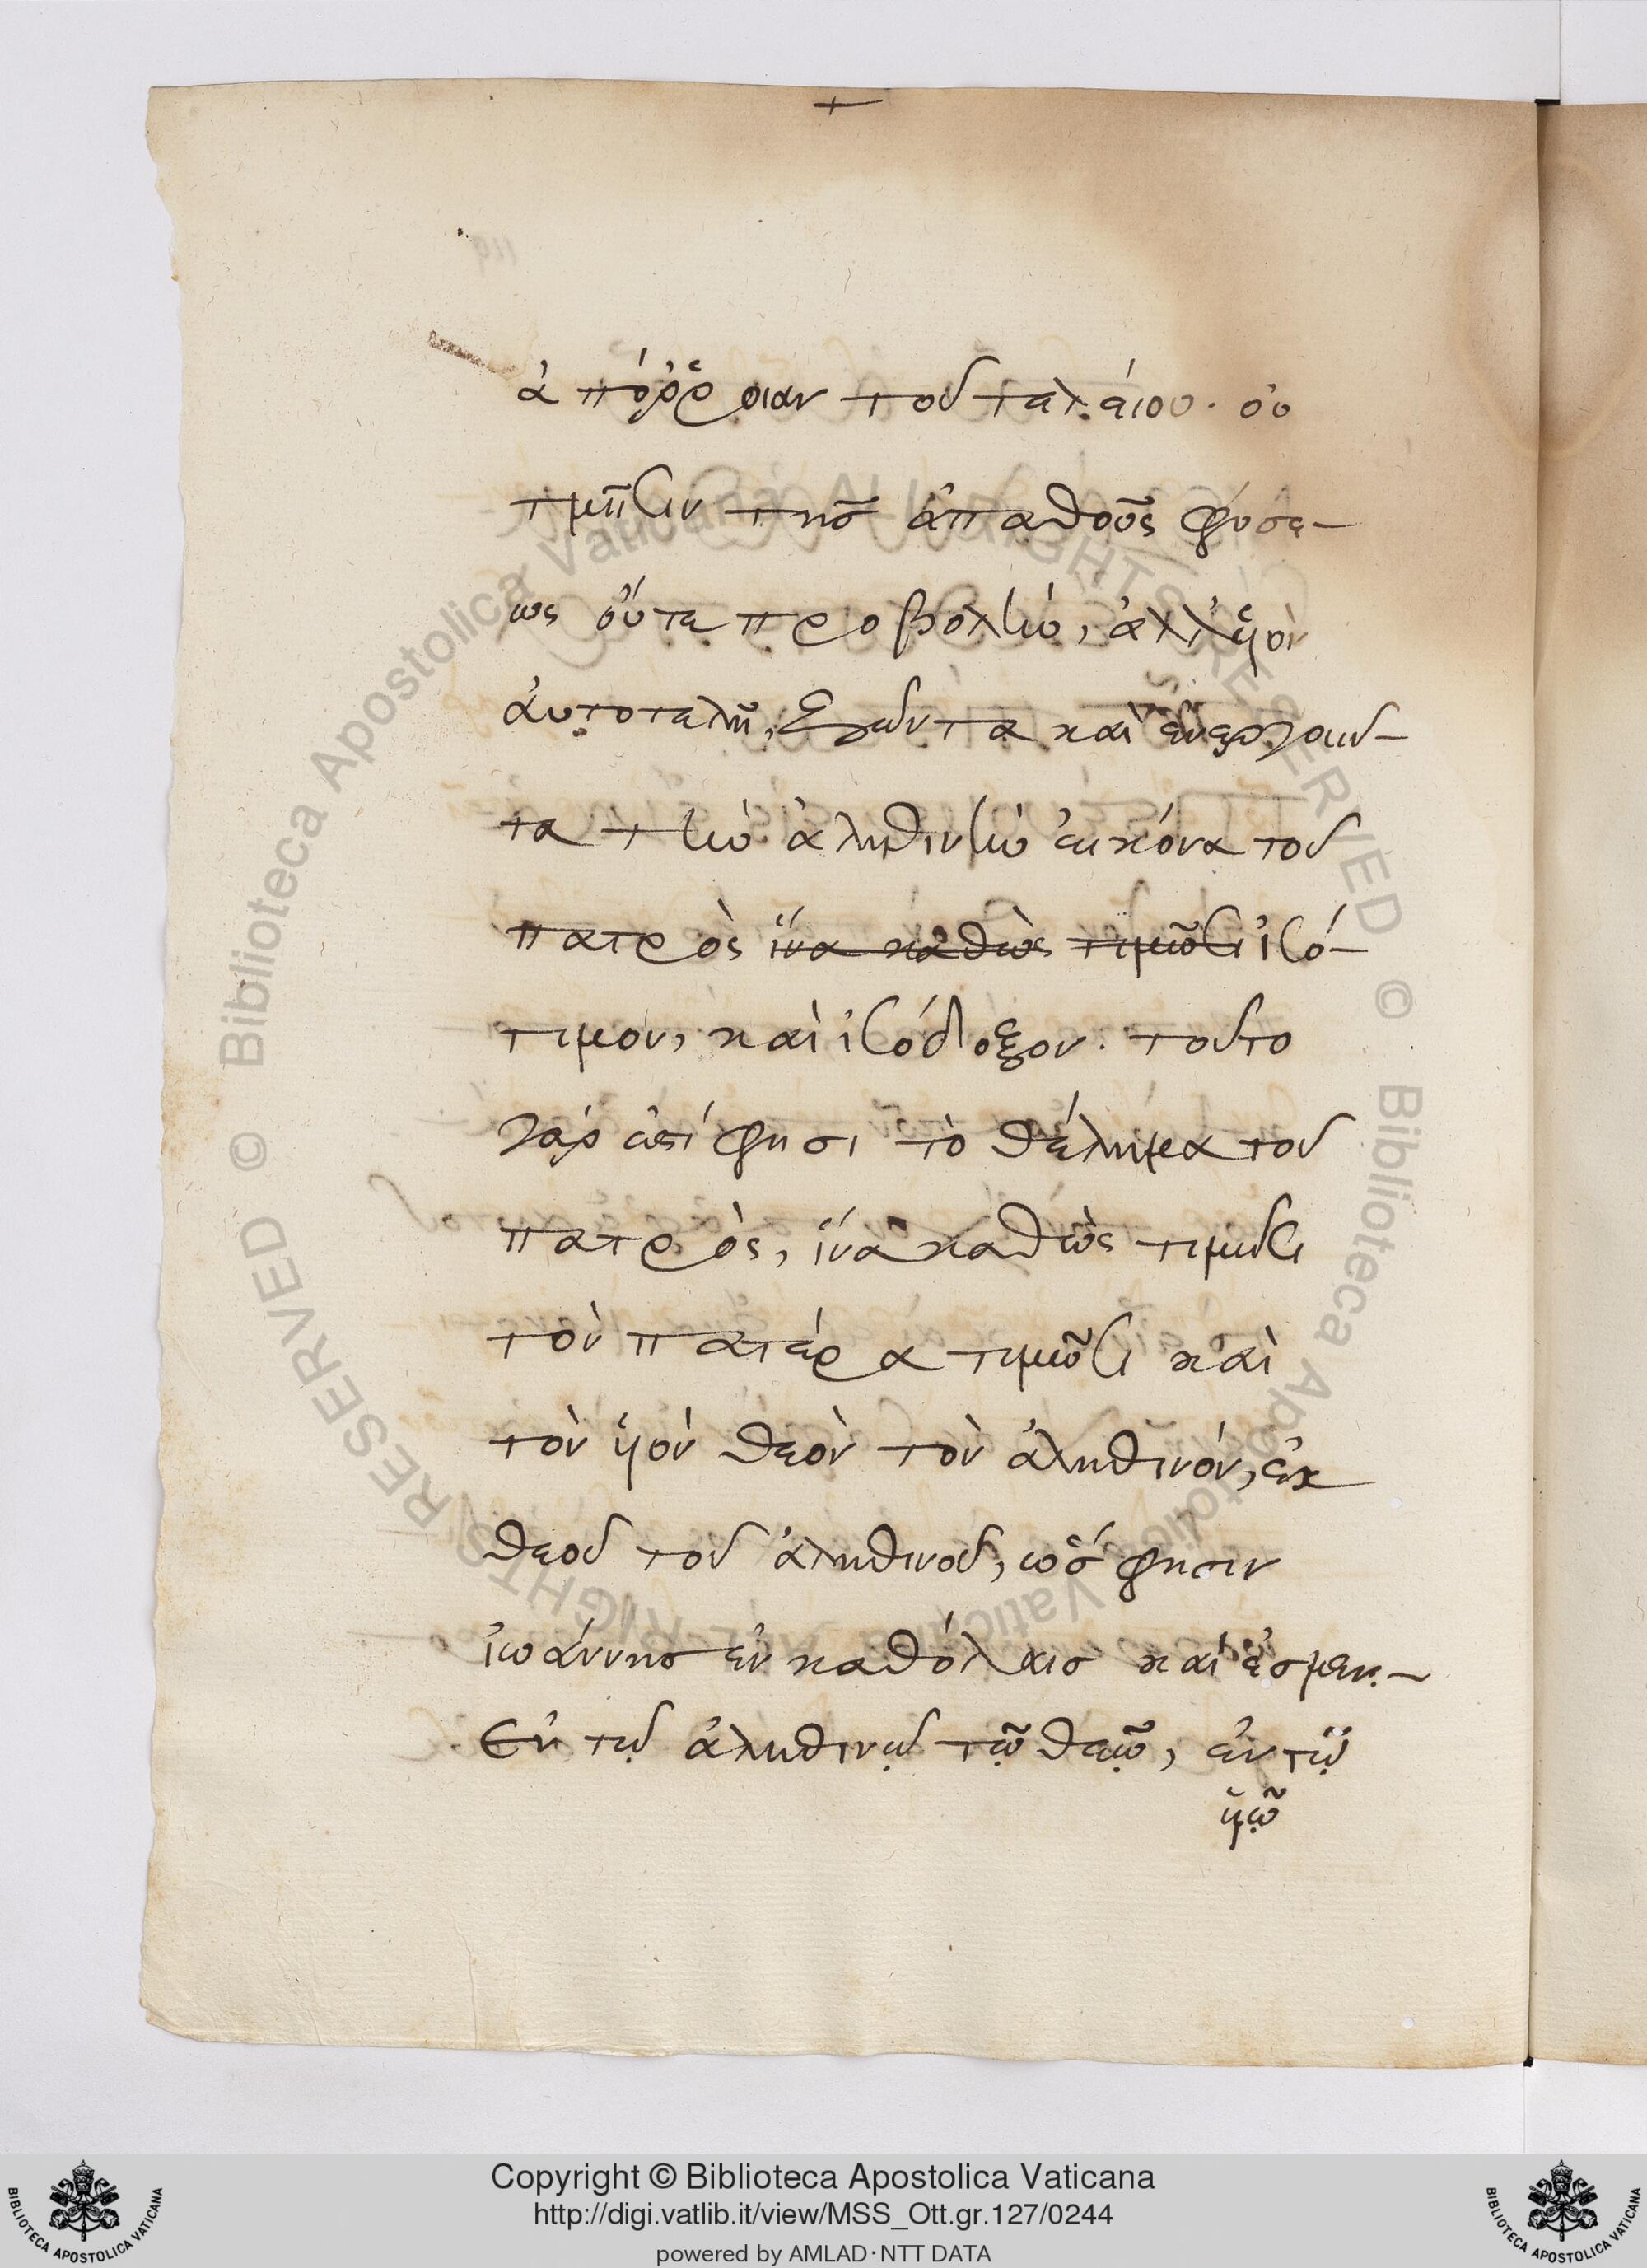 ἀπόῤῥοιαν τοῦ τελείου. οὐ
τμῆσιν τῆς ἀπαθοῦς φύσε-
ως οὔτε προβολὴν, ἀλλ' ὑιὸν
ἀυτοτελῆ, ζῶντα καὶ ἐνεργοῦν-
τα τὴν ἀληθινὴν εἰκόνα τοῦ
πατρὸς ἵνα καθὼς τιμῶσι ἰσό-
τιμον, καὶ ἰσόδοξον. τοῦτο
γάρ ἐστί φησι τὸ θέλημα τοῦ
πατρὸς, ἵνα καθὼς τιμῶσι
τὸν πατέρα τιμῶσι καὶ
τὸν ὑιὸν θεὸν τὸν ἀληθινόν, ἐκ
θεοῦ τοῦ ἀληθινοῦ, ὥς φησιν
ἰωάννης ἐν καθόλαις καὶ ἐσμεν.-
Ἐν τῷ ἀληθινῷ τῷ θεῷ, ἐν τῷ
ὑιῷ
Copyright © Biblioteca Apostolica Vaticana
http://digi.vatlib.it/view/MSS_Ott.gr.127/0244
powered by AMLAD·NTT DATA
BIBLIOTECA APOSTOLICA VATICANA
BIBLIOTECA APOSTOLICA VATICANA
© Biblioteca Apostolica Vaticana ALL RIGHTS RESERVED © Biblioteca Apostolica Vaticana ALL RIGHTS RESERVED